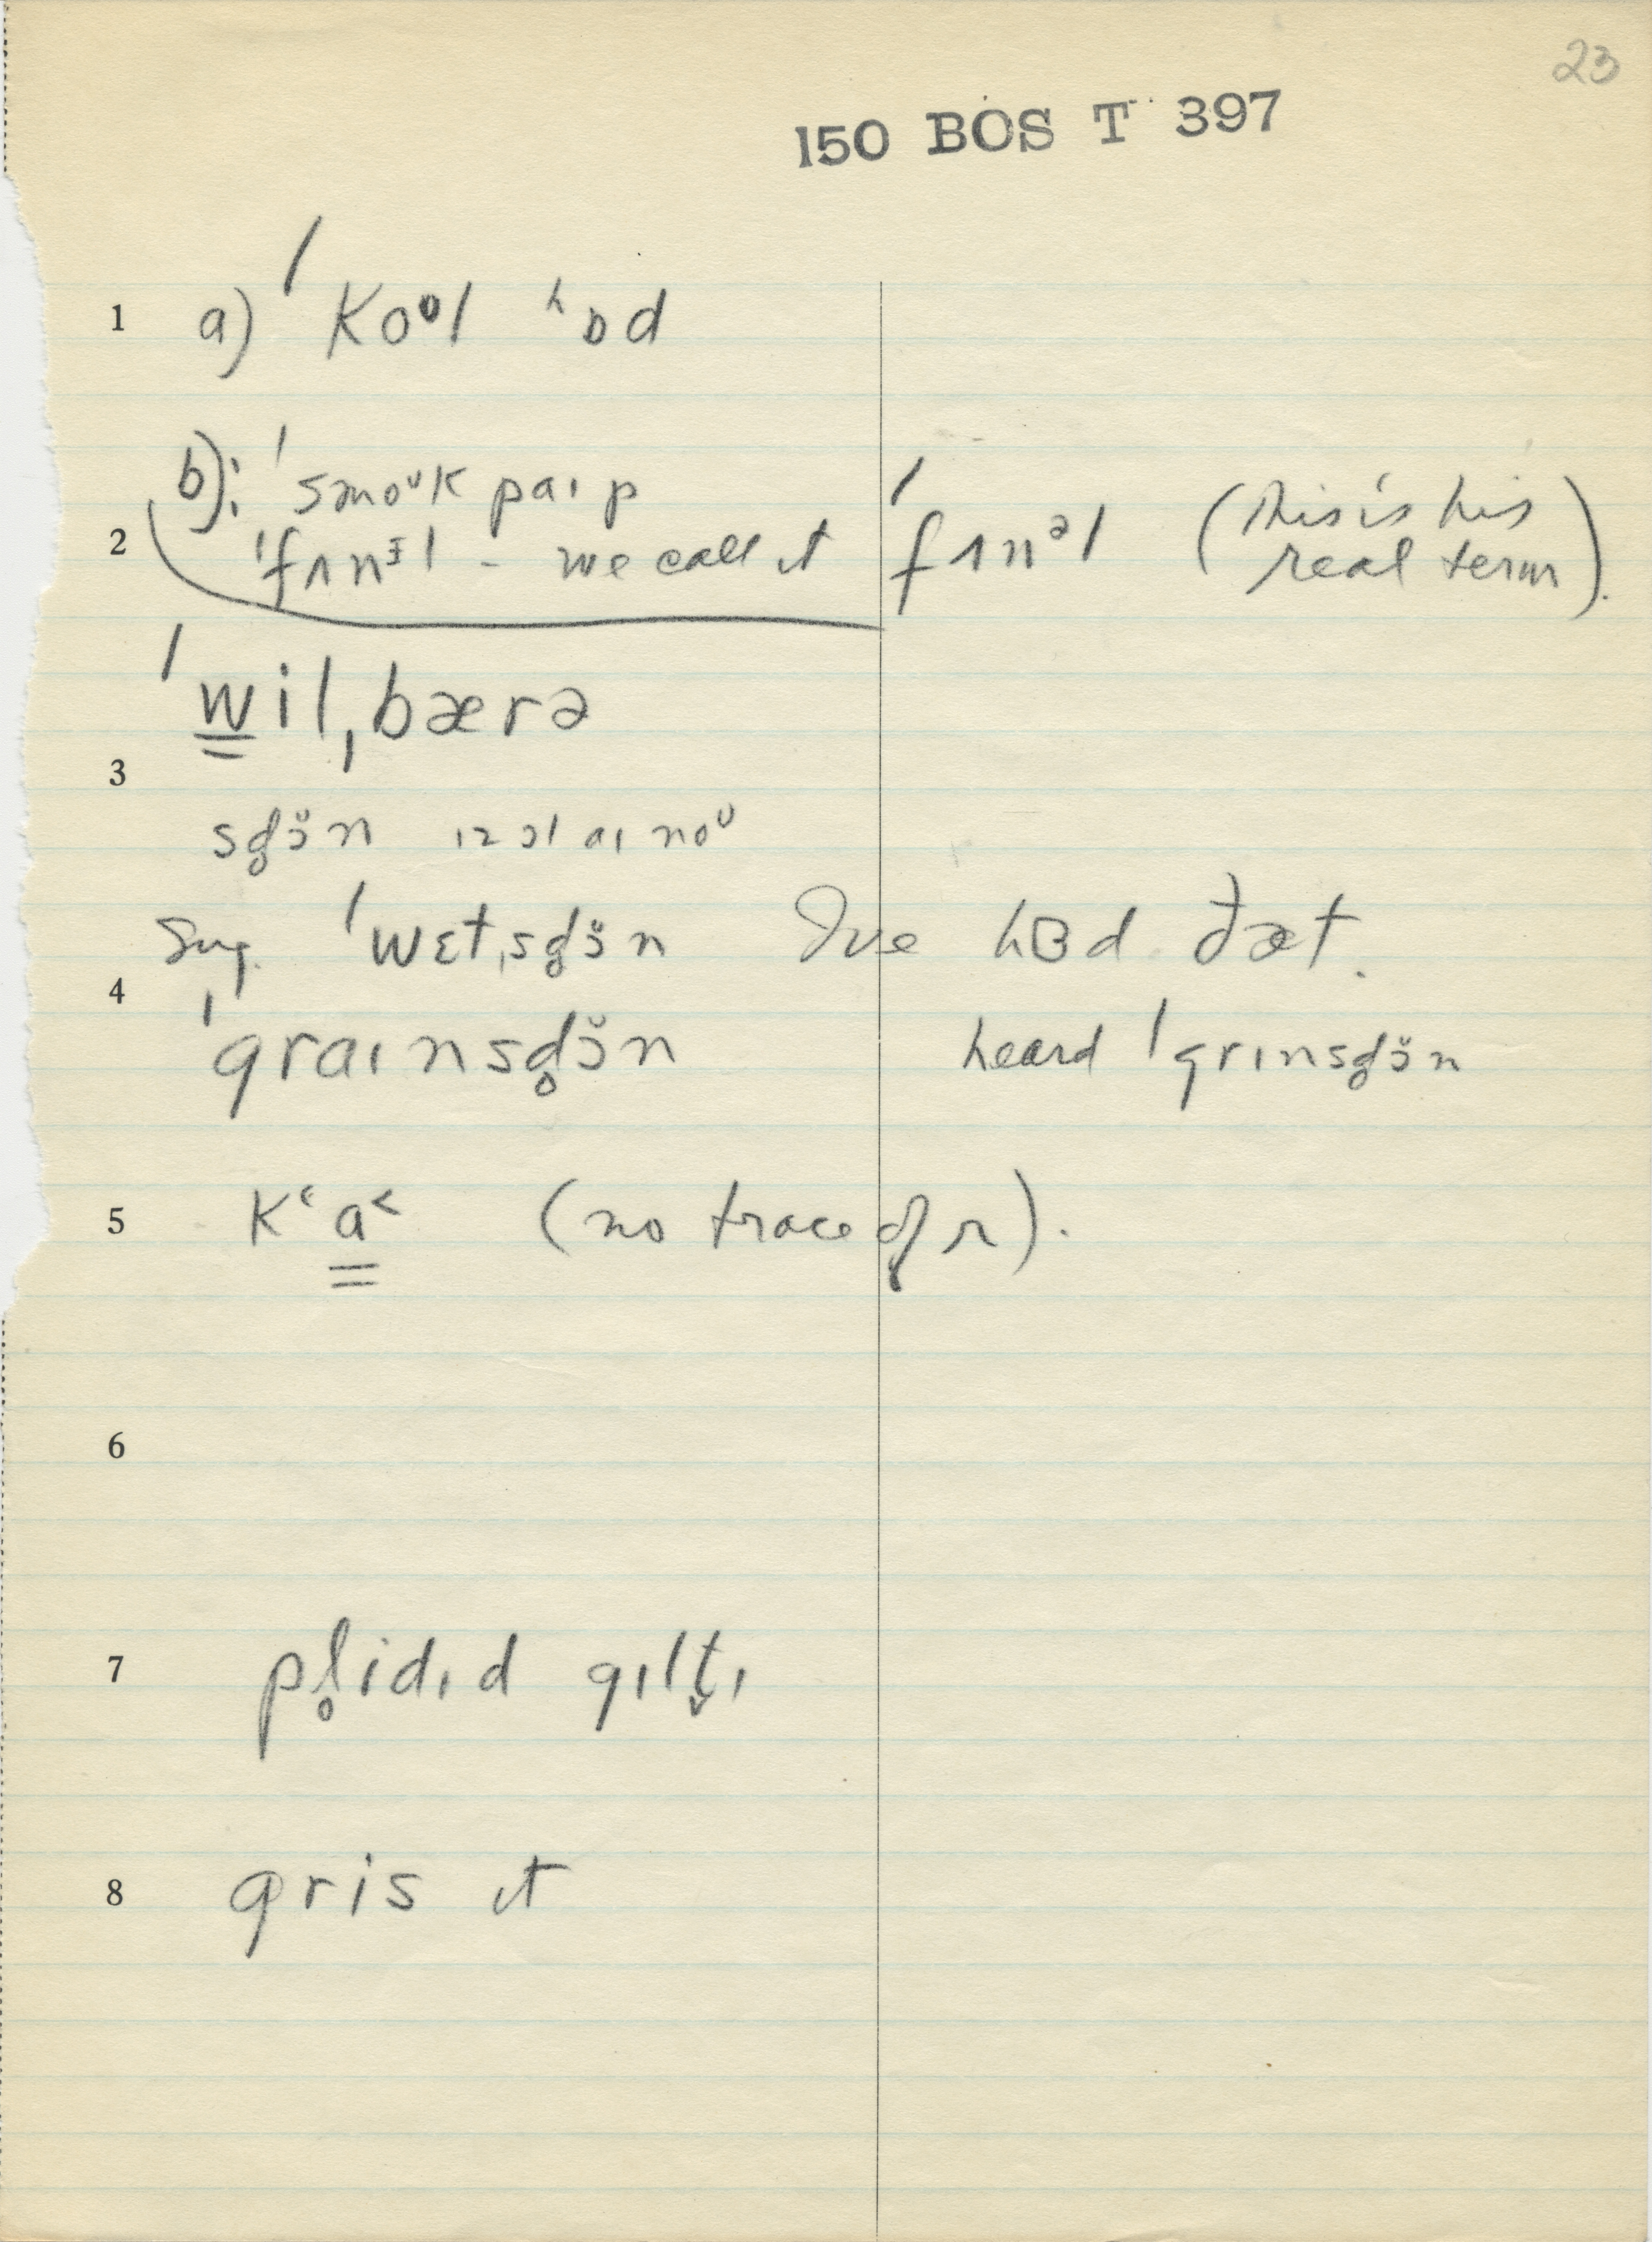 23
150 BOS T 397
1 a) ˈkoᶷl ʰɒd
b): ˈsmoᶷk paɪp
2 ˈfʌnᵻl - we call it ˈfʌnᵊl (This is his real term).
ˈwil,bærə
3
sd̥ɔ̆n ɪz ɔl aɪ noᶷ
Sug. ˈwɛt,sd̥ɔ̆n I've hɞd ðæt.
4
ˈgraɪnsd̥ɔ̆n heard ˈgrɪnsd̥ɔ̆n
5 kʿa˂ (no trace of r).
6
7 pl̥idɪd gɪlt̬ɪ
8 gris ɪt